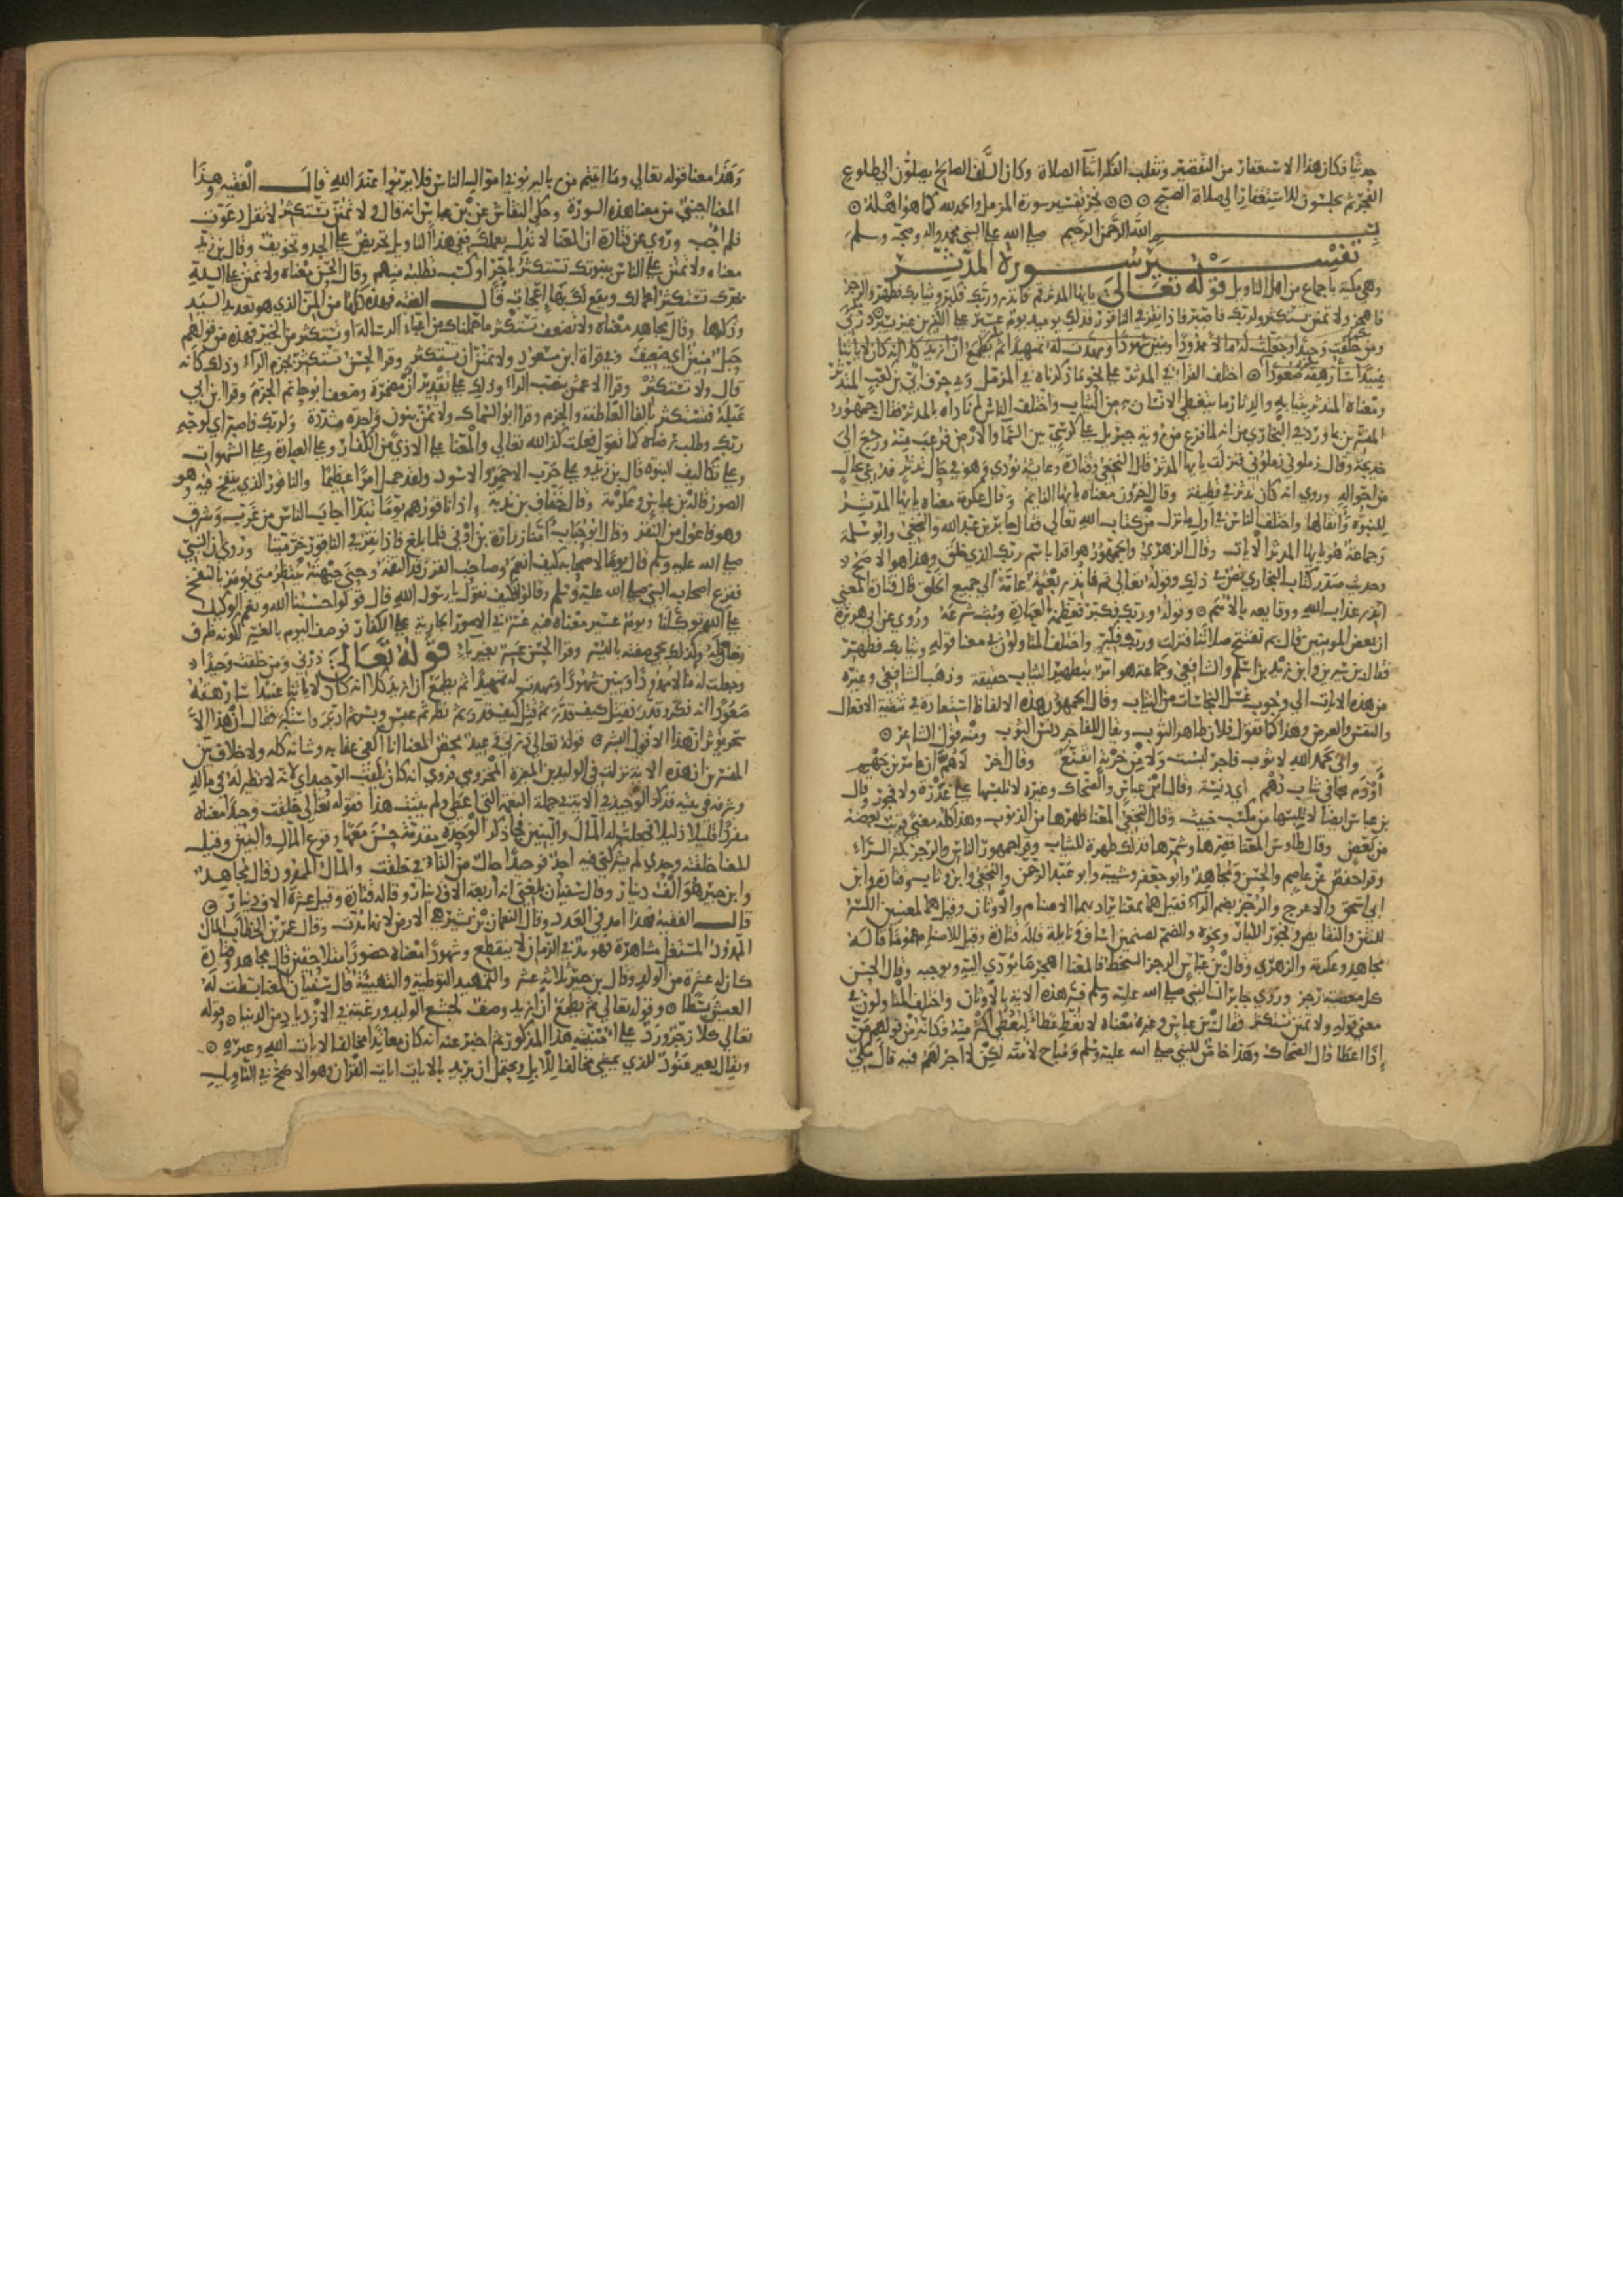 حدثنا فكان هذا الاستغفار من التقصير وتفلت الفكر اثنا الصلاة وكان السلف الصالح يصلون الي طلوع
الفجر ثم يجلسون للاستغفار الي صلاة الصبح نجز تفسير سورة المزمل والحمد لله كما هو اهله
بسم الله الرحمن الرحيم صلي الله علي النبي محمد واله وصحبه وسلم
تفسير سورة المدثر
وهي مكية باجماع من اهل التاويل قوله تعالى يايها المدثر قم فانذر وربك فكبر وثيابك فطهر والرجز
فاهجر ولا تمنن تستكثر ولربك فاصبر فاذا نقر في الناقور فذلك يوميذ يوم عسير علي الكفرين غير يسير ذرني
ومن خلقت وحيدا وجعلت له مالا ممدودا وبنين شهودا ومهدت له تمهيدا ثم يطمع ان ازيد كلا انه كان لاياتنا
عنيدا سارهقه صعودا اختلف القرا في المدثر علي نحو ما ذكرناه في المزمل وفي حرف ابي بن كعب المتدثر
ومعناه المتدثر بثيابه والدثار ما يتغطي الانسان به من الثياب واختلف الناس لم ناداه بالمدثر فقال جمهور
المفسرين بما ورد في البخاري من انه لما فزع من روية جبريل علي كرسي بين السما والارض فرعب منه ورجع الي
خديجة وقال زملوني زملوني فنزلت يايها المدثر قال النخعي وقتادة وعايشة نودي وهو في حال تدثر فدعي بحال
من احواله وروي انه كان تدثر في قطيفة وقال اخرون معناه يايها النايم وقال عكرمة معناه يايها المدثر
للنبوة واثقالها واختلف الناس في اول ما نزل من كتاب الله تعالي فقال جابر بن عبد الله والنخعي وابو سلمة
وجماعة هو يايها المدثر الايات وقال الزهري والجمهور هو اقرا باسم ربك الذي خلق وهذا هو الاصح
وحديث صدر كتاب البخاري نص في ذلك وقوله تعالي قم فانذر بعثة عامة الي جميع الخلق قال قتادة المعني
انذر عذاب الله ووقايعه بالامم وقوله وربك فكبر فعظمه بالعبادة وبث شرعه وروي عن ابي هريرة
ان بعض المومنين قال بم نفتتح صلاتنا فنزلت وربك فكبر واختلف المتاولون في معنا قوله وثيابك فطهر
فقال بن سيرين وابن زيد بن اسلم والشافعي وجماعة هو امر بتطهير الثياب حقيقة وذهب الشافعي وغيره
من هذه الايات الي وجوب غسل النجاسات من الثياب وقال الجمهور هذه الالفاظ استعارة في تنقية الافعال
والنفس والعرض وهذا كما تقول فلان طاهر الثوب ويقال للفاجر دنس الثوب ومنه قول الشاعر
واني بحمد الله لا ثوب فاجر لبست ولا من خزية اتقنع وقال اخر لاهم ان عامر بن جهم
اوذم حجا في ثياب دسم اي دنسة وقال ابن عباس والضحاك وغيره لا تلبسها علي غدرة ولا فجور وقال
بن عباس ايضا لا تلبسها من مكسب خبيث وقال النخعي المعنا طهرها من الذنوب وهذا كله معني قريب بعضه
من بعض وقال طاوس المعنا قصرها وشمرها فذلك طهرة للثياب وقرا جمهور الناس والرجز بكسر الراء
وقرا حفص عن عاصم والحسن ومجاهد وابو جعفر وشيبة وابو عبد الرحمن والنخعي وابن وثاب وقتادة وابن
ابي اسحق والاعرج والرجز بضم الراء فقيل هما بمعنا يراد بهما الاصنام والاوثان وقيل هما لمعنيين الكسر
للنتن والنقايص وفجور الكفار ونحوه والضم لصنمين اساف ونايلة قاله قتادة وقيل للاصنام عموما قاله
مجاهد وعكرمة والزهري وقال بن عباس الرجز السخط فالمعنا اهجر ما يودي اليه ويوجبه وقال الحسن
كل معصية رجز وروي جابر ان النبي صلي الله عليه وسلم فسر هذه الاية بالاوثان واختلف المتاولون في
معني قوله ولا تمنن تستكثر فقال بن عباس وغيره معناه لا تعط عطاء لتعطي اكثر منه فكانه من قولهم من
اذا اعطا قال الضحاك وهذا خاص للنبي صلي الله عليه وسلم ومباح لامته لكن لا اجر لهم فيه قال مكي
وهذا معنا قوله تعالي وما اتيتم من ربا ليربو في اموال الناس فلا يربوا عند الله قال الفقيه وهذا
المعنا اجنبي من معنا هذه السورة وحكي النقاش عن بن عباس انه قال ولا تمنن تستكثر لا تقل دعوت
فلم اجب وروي عن قتادة ان المعنا لا تدل بعملك ففي هذا التاويل تحريض علي الجد وتخويف وقال بن زيد
معناه ولا تمنن علي الناس بنبوتك تستكثر باجر او كسب تطلبه منهم وقال الحسن معناه ولا تمنن علي الله
بجدك تستكثر اعمالك ويقع لك بها اعجاب قال الفقيه فهذه كلها من المن الذي هو تعديد اليد
وذكرها وقال مجاهد معناه ولا تضعف تستكثر ما حملناك من اعباء الرسالة او تستكثر من الخير فهذه من قولهم
حبل منين اي ضعيف وفي قراة ابن مسعود ولا تمنن ان تستكثر وقرا الحسن تستكثر بجزم الراء وذلك كانه
قال ولا تستكثر وقرا الاعمش بنصب الراء وذلك علي تقدير ان مضمرة وضعف ابو حاتم الجزم وقرا ابن ابي
عبلة فتستكثر بالفا العاطفة والجزم وقرا ابو السماك ولا تمن بنون واحدة مشددة ولربك فاصبر اي لوجه
ربك وطلب رضاه كما تقول فعلت كذا لله تعالي والمعنا علي الاذي من الكفار وعلي العبادة وعلي الشهوات
وعلي تكاليف النبوة قال بن زيد وعلي حرب الاحمر والاسود ولقد حمل امرا عظيما والناقور الذي ينفخ فيه وهو
الصور قاله بن عباس وعكرمة وقال خفاف بن ندبة اذا ناقورهم يوما تبدا اجاب الناس من غرب وشرق
وهو فاعول من النقر وقال ابو حباب امنا زرارة بن اوفي فلما بلغ فاذا نقر في الناقور خر ميتا وروي ان النبي
صلي الله عليه وسلم قال يوما لاصحابه كيف انعم وصاحب القرن قد التقمه وحني جبهته ينتظر متي يومر بالنفخ
ففزع اصحاب النبي صلي الله عليه وسلم وقالوا فكيف نقول يا رسول الله قال قولوا حسبنا الله ونعم الوكيل
علي الله توكلنا ويوم عسير معناه فيه عسر في الامور الجارية علي الكفار فوصف اليوم بالعسر لكونه ظرف
زمان له وكذلك تجي صفته باليسر وقرا الحسن عسر بغير ياء قوله تعالى ذرني ومن خلقت وحيدا
وجعلت له مالا ممدودا وبنين شهودا ومهدت له تمهيدا ثم يطمع ان ازيد كلا انه كان لاياتنا عنيدا سارهقه
صعودا انه فكر وقدر فقتل كيف قدر ثم قتل كيف قدر ثم نظر ثم عبس وبسر ثم ادبر واستكبر فقال ان هذا الا
سحر يوثر ان هذا الا قول البشر قوله تعالي ذرني وعيد محض المعنا انا اكفي عقابه وشانه كله ولا خلاف بين
المفسرين ان هذه الاية نزلت في الوليد بن المغيرة المخزومي فروي انه كان يلقب الوحيد اي لانه لا نظير له في ماله
وشرفه في بيته فذكر الوحيد في الاية في جملة النعمة التي اعطي ولم يثبت هذا فقوله تعالي خلقت وحيدا معناه
مفردا قليلا ذليلا فجعلت له المال والبنين فجا ذكر الوحدة مقدمة حسن معها وقوع المال والبنين وقيل
المعنا خلقته وحدي لم يشركني فيه احد فوحيدا حال من التاء في خلقت والمال الممدود قال مجاهد
وابن جبير هو الف دينار وقال سفيان بلغني انه اربعة الاف دينار وقاله قتادة وقيل عشرة الاف دينار
قال الفقيه فهذا امد في العدد وقال النعمان بن بشير هي الارض لانها مدت وقال عمر بن الخطاب المال
الممدود المستغل مشاهرة فهو مد في الزمان لا ينقطع وشهودا معناه حضورا متلاحقين قال مجاهد وقتادة
كان له عشرة من الولد وقال بن جبير ثلاثة عشر والتمهيد التوطية والتهيئة قال سفيان المعنا بسطت له
العيش بسطا وقوله تعالي ثم يطمع ان ازيد وصف لجشع الوليد ورغبته في الازدياد من الدنيا وقوله
تعالي كلا زجر ورد علي امنيته هذا المذكور ثم اخبر عنه انه كان معاندا مخالفا لايات الله وعبره
ويقال بعير عنود للذي يمشي مخالفا للابل ويحتمل ان يريد بالايات ايات القران وهو الاصح في التاويل